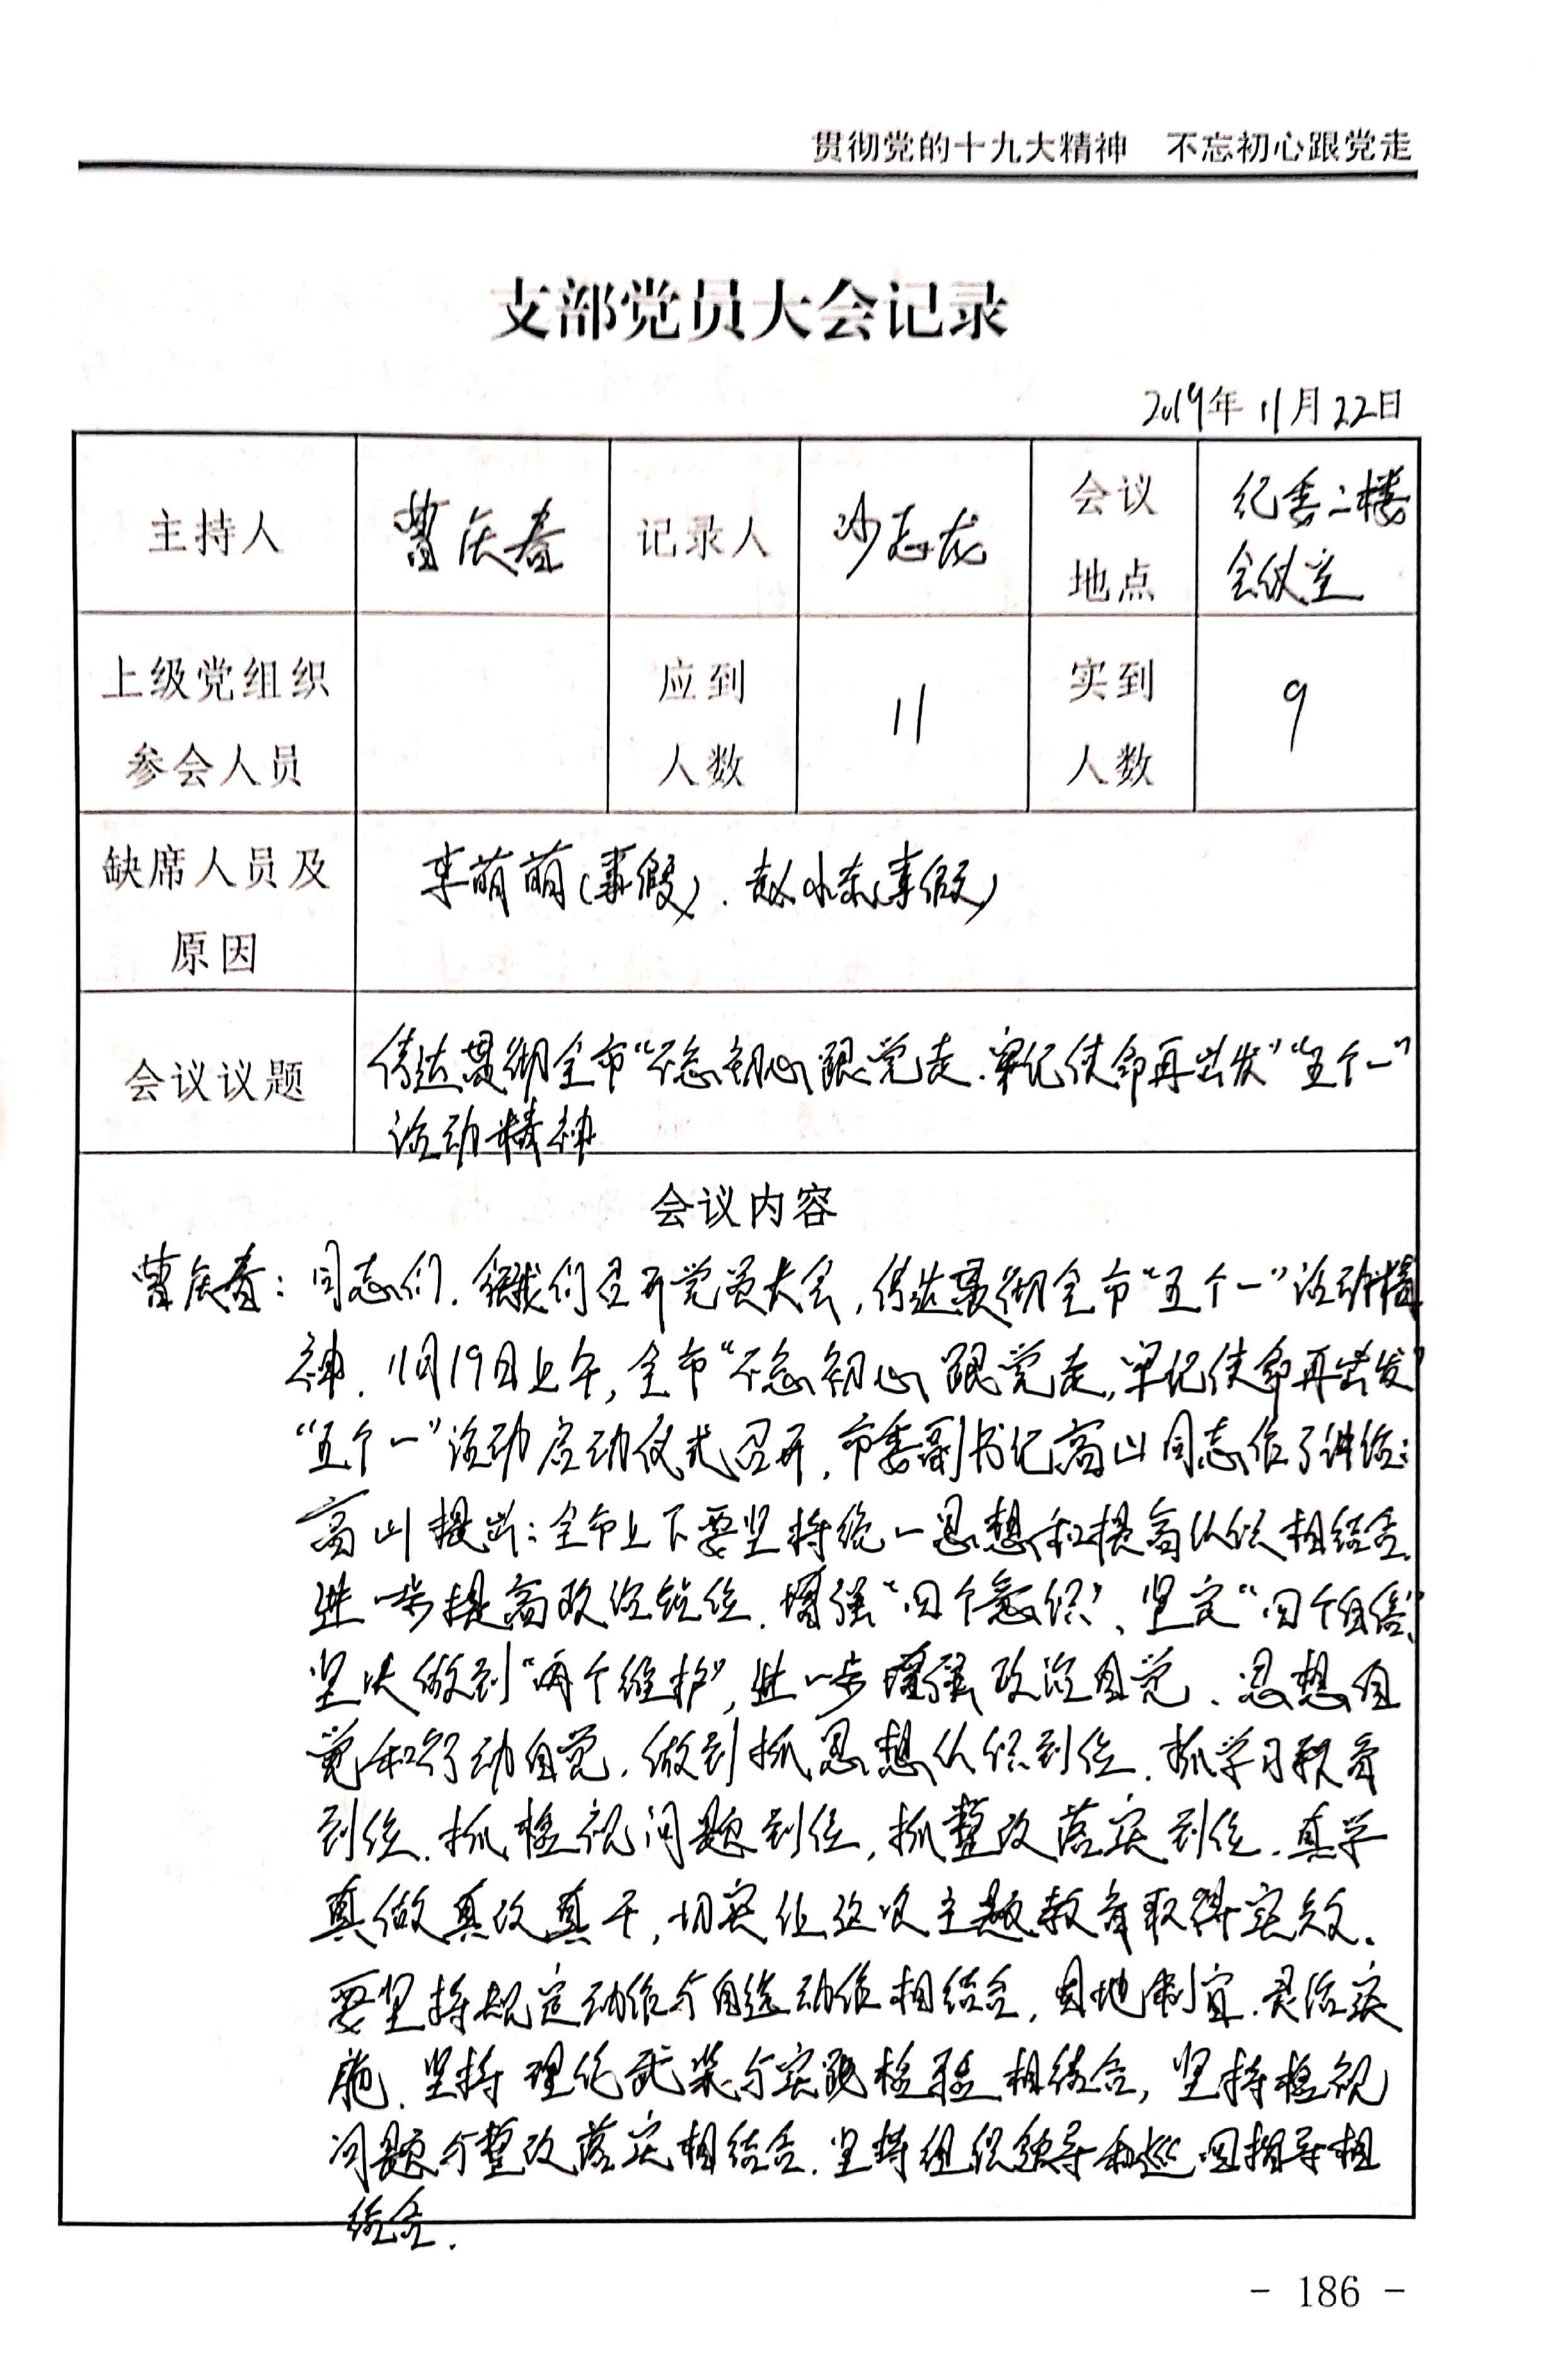 贯彻党的十九大精神　不忘初心跟党走
支部党员大会记录
2019年11月22日
主持人 曹庆春 记录人 沙志龙 会议地点 纪委二楼会议室
上级党组织参会人员 应到人数 11 实到人数 9
缺席人员及原因 李萌萌(事假)、赵小东(事假)
会议议题 传达贯彻全市“不忘初心跟党走、牢记使命再出发”“五个一”
活动精神
会议内容
曹庆春：同志们，我们召开党员大会，传达贯彻全市“五个一”活动精
神。11月19日上午，全市“不忘初心跟党走，牢记使命再出发”
“五个一”活动启动仪式召开，市委副书记高山同志作了讲话：
高山提出：全市上下要坚持统一思想和提高认识相结合，
进一步提高政治站位，增强“四个意识”、坚定“四个自信”、
坚决做到“两个维护”，进一步增强政治自觉、思想自
觉和行动自觉，做到抓思想认识到位、抓学习教育
到位、抓检视问题到位，抓整改落实到位，真学
真做真改真干，切实让这次主题教育取得实效。
要坚持规定动作与自选动作相结合，因地制宜、灵活实
施，坚持理论武装与实践检验相结合，坚持检视
问题与整改落实相结合，坚持组织领导和巡回指导相
结合。
- 186 -